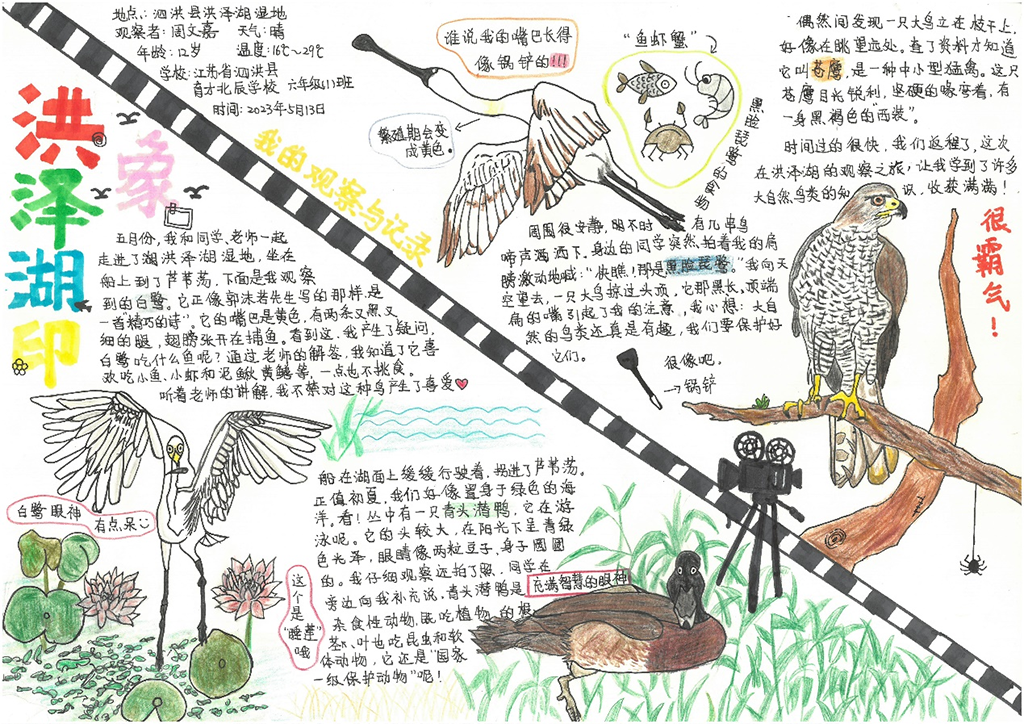 地点：泗洪县洪泽湖湿地
观察者：周文嘉 天气：晴
年龄：12岁 温度：16℃～29℃
学校：江苏省泗洪县
育才北辰学校 六年级(1)班
时间：2023年5月13日
洪泽湖印象
我的观察与记录
五月份，我和同学、老师一起
走进了湖洪泽湖湿地，坐在
船上到了芦苇荡，下面是我观察
到的白鹭。它正像郭沫若先生写的那样，是
一首“精巧的诗”。它的嘴巴是黄色，有两条又黑又
细的腿，翅膀张开在捕鱼。看到这，我产生了疑问，
白鹭吃什么鱼呢？通过老师的解答，我知道了它喜
欢吃小鱼、小虾和泥鳅黄鳝等，一点也不挑食。
听着老师的讲解，我不禁对这种鸟产生了喜爱
白鹭眼神有点呆
这个是“睡莲”哦
船在湖面上缓缓行驶着，拐进了芦苇荡。
正值初夏，我们好像置身于绿色的海
洋。看！丛中有一只青头潜鸭，它在游
泳呢。它的头较大，在阳光下呈青绿
色光泽，眼睛像两粒豆子，身子圆圆
的。我仔细观察还拍了照，同学在
旁边向我补充说，青头潜鸭是
杂食性动物，既吃植物的根、
茎、叶也吃昆虫和软
体动物，它还是“国家
一级保护动物”呢！
充满智慧的眼神
谁说我的嘴巴长得
像锅铲的!!!
繁殖期会变
成黄色。
“鱼虾蟹”
周围很安静，时不时有几串鸟
啼声洒下。身边的同学突然拍着我的肩
膀激动地喊：“快瞧！那是黑脸琵鹭。”我向天
空望去，一只大鸟掠过头顶，它那黑长，顶端
扁的嘴引起了我的注意，我心想：大自
然的鸟类还真是有趣，我们要保护好
它们。
很像吧，
→锅铲
偶然间发现一只大鸟立在枝干上，
好像在眺望远处。查了资料才知道
它叫苍鹰，是一种中小型猛禽。这只
苍鹰目光锐利，坚硬的喙弯着，有
一身黑褐色的“西装”。
时间过的很快，我们返程了，这次
在洪泽湖的观察之旅，让我学到了许多
大自然鸟类的知识，收获满满！
很霸气！